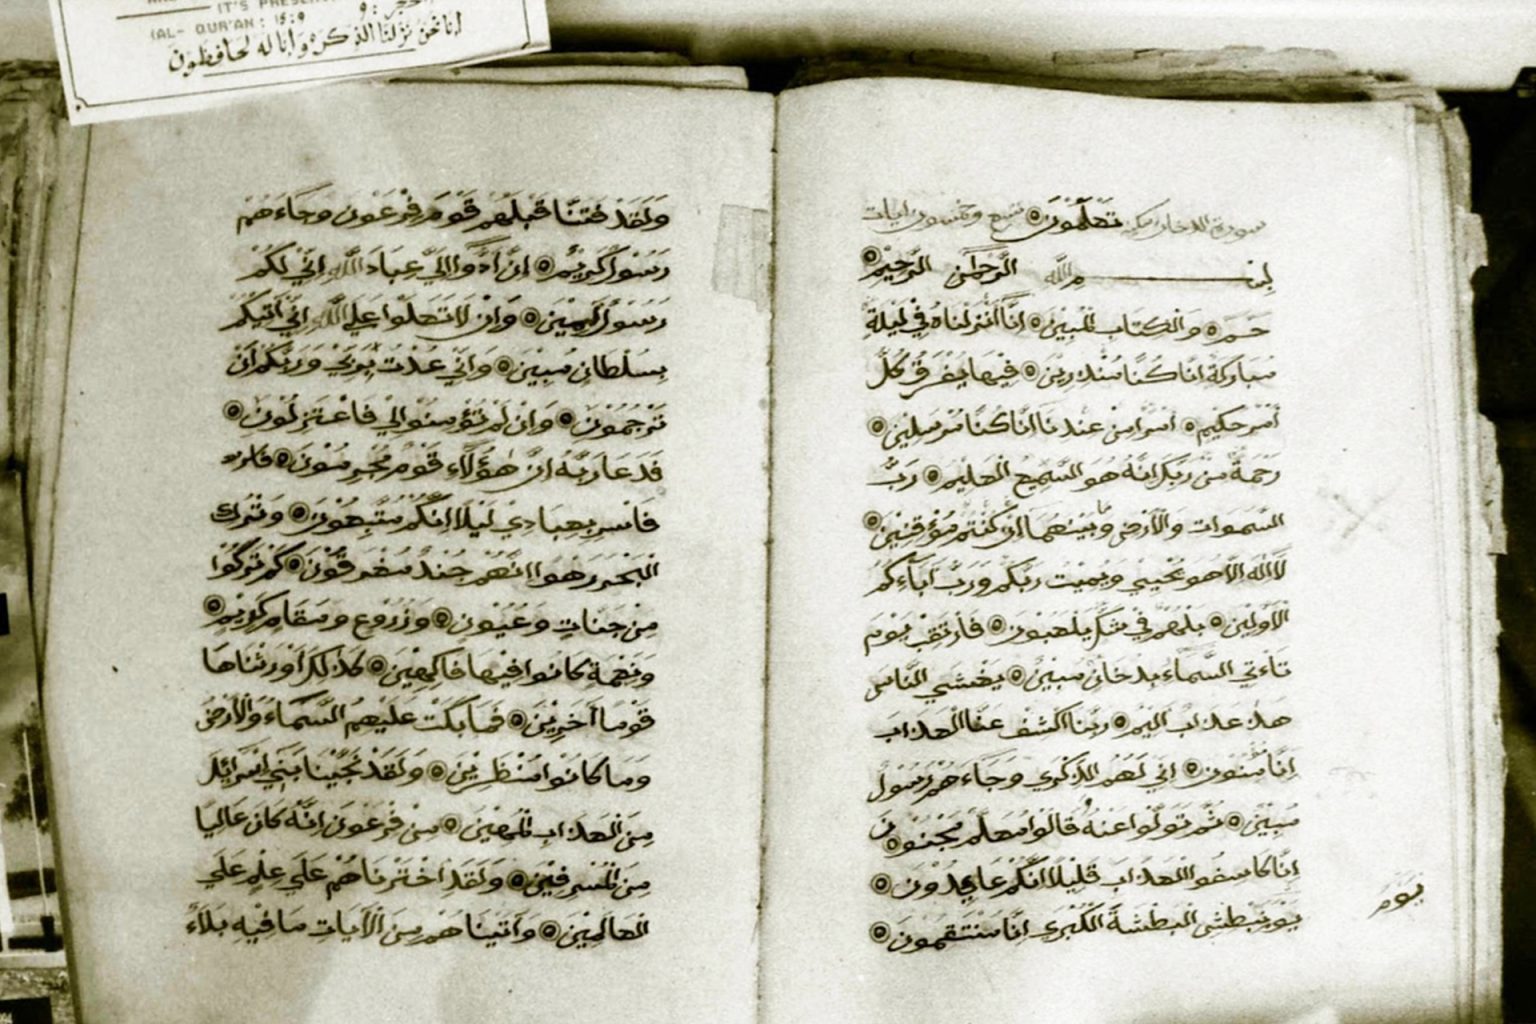 IT'S PRESE
(AL- QUR'AN: 15:9
إنا نحن نزلنا الذكر وإنا له لحافظون
سورة الدخان مكية تَعْلَمُوْنَ تسع وخمسون ايات
بسم الله الرحمن الرحيم
حم والكتاب المبين انا انزلناه في ليلة
مباركة انا كنا منذرين فيها يفرق كل
امر حكيم امرا من عندنا انا كنا مرسلين
رحمة من ربك انه هو السميع العليم رب
السموات والارض وما بينهما ان كنتم موقنين
لا اله الا هو يحيي ويميت ربكم ورب اباءكم
الاولين بل هم في شك يلعبون فارتقب يوم
تاءتي السماء بدخان مبين يغشي الناس
هذ عذاب اليم ربنا اكشف عنا العذاب
انا مؤمنون اني لهم الذكري وجاءهم رسول
مبين ثم تولوا عنه وقالوا معلم مجنون
انا كاشفوا العذاب قليلا انكم عايدون
يوم نبطش البطشة الكبري انا منتقمون
يوم
ولقد فتنا قبلهم قوم فرعون وجاءهم
رسول كريم ان ادوا الي عباد الله اني لكم
رسول امين وان لا تعلوا علي الله اني اتيكم
بسلطان مبين واني عذت بربي وربكم ان
ترجمون وان لم تؤمنوا لي فاعتزلون
فدعا ربه ان هؤلاء قوم مجرمون
فاسر بعبادي ليلا انكم متبعون وترك
البحر رهوا انهم جند مغرقون كم تركوا
من جنات وعيون وزروع ومقام كريم
ونعمة كانوا فيها فاكهين كذلك اورثناها
قوما اخرين فما بكت عليهم السماء والارض
وما كانوا منظرين ولقد نجينا بني اسرائل
من العذاب المهين من فرعون انه كان عاليا
من المسرفين ولقد اخترناهم علي علم علي
العالمين واتيناهم من الايات ما فيه بلاء